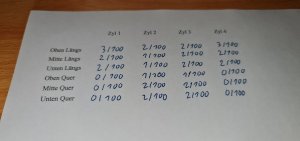 Zyl 1 Zyl 2 Zyl 3 Zyl 4
Oben Längs 3/100 2/100 2/100 3/100
Mitte Längs 2/100 1/100 2/100 2/100
Unten Längs 2/100 1/100 2/100 2/100
Oben Quer 0/100 1/100 1/100 0/100
Mitte Quer 0/100 2/100 2/100 0/100
Unten Quer 0/100 2/100 2/100 0/100